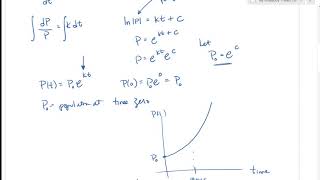 dt
∫ dP/P = ∫ k dt
ln|P| = kt + c
P = e^{kt+c}
P = e^{kt} e^{c}
Let
P₀ = e^{c}
P(t) = P₀ e^{kt}
P(0) = P₀ e^{0} = P₀
P₀ = population at time zero
P(t)
P₀
time